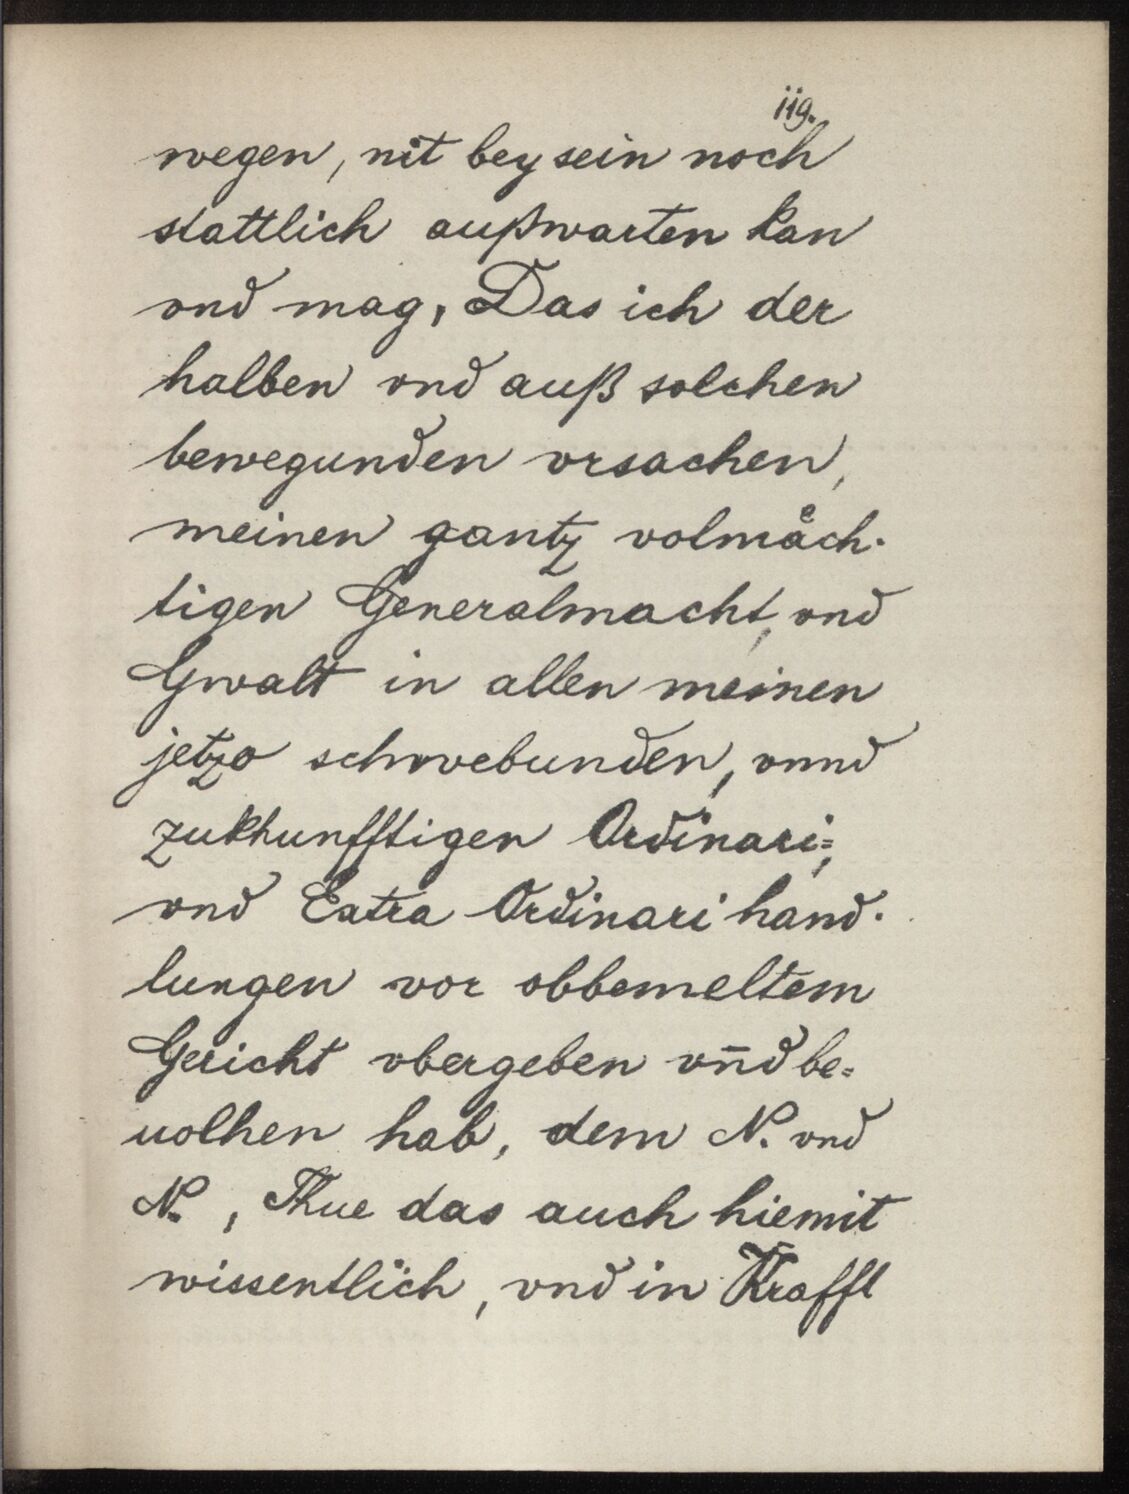 iig.
wegen, nit bey sein noch
stattlich außwarten kan
vnd mag, Das ich der
halben vnd auß solchen
bewegunden vrsachen,
meinen gantz volmaͤch-
tigen Generalmacht, vnd
Gwalt in allen meinen
jetzo schwebunden, vnnd
zukhunfftigen Ordinari=,
vnd Extra Ordinari hand-
lungen vor obbemeltem
Gericht vbergeben vn̄d be=
uolhen hab, dem N. vnd
N., Thue das auch hiemit
wissentlich, vnd in Krafft